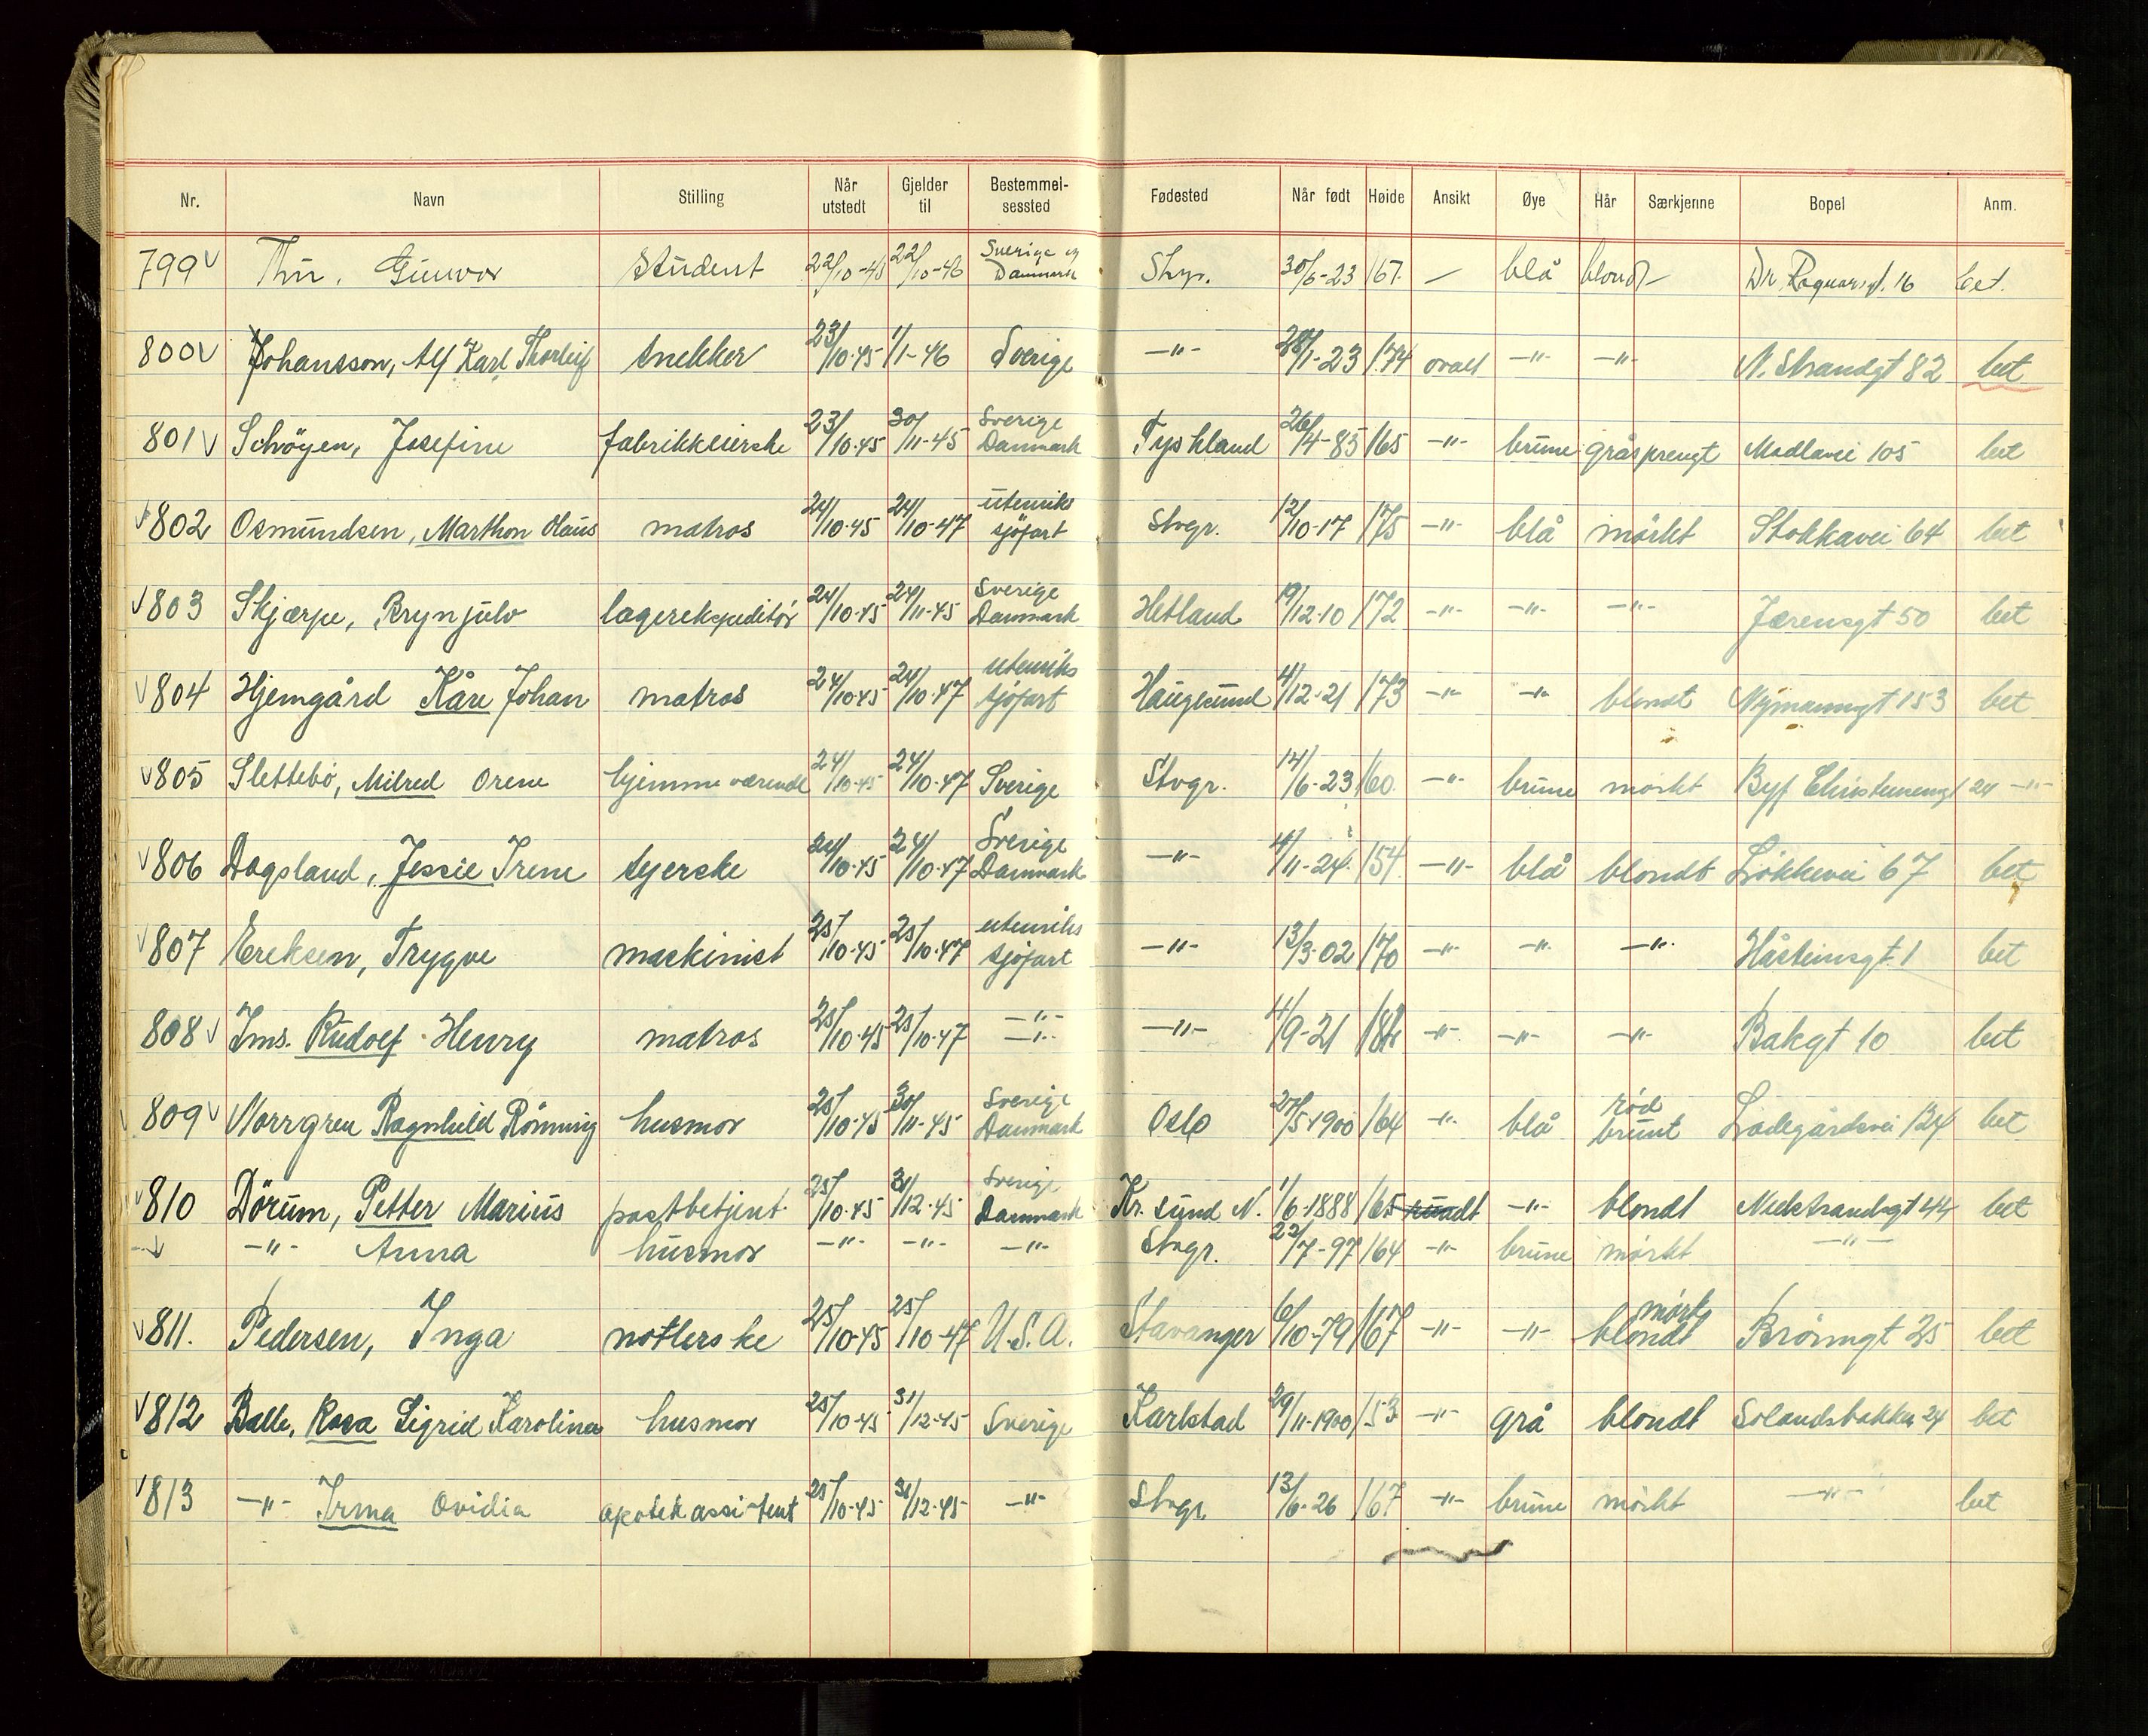 Nr. Navn Stilling Når utstedt Gjelder til Bestemmel-sessted Fødested Når født Høide Ansikt Øye Hår Særkjenne Bopel Anm.
799 V Thu, Gunvor student 22/10-45 22/10-46 Sverige og Danmark Stvgr. 30/6-23 167. — blå blond — Dr 16 bet.
800 V Johansson, Alf Karl Thorleif snekker 23/10-45 1/1-46 Sverige —"— 28/1-23 174 ovalt —"— —"— N. Strandgt 82 bet
801 V Schöyen, Josefine fabrikkeierske 23/10-45 30/11-45 Sverige Danmark Tyskland 26/4-85 165 —"— brune gråsprengt Madlavei 105 bet
V 802 Osmundsen, Marthon Olaus matros 24/10-45 24/10-47 utenriks sjöfart Stvgr. 12/10-17 175 —"— blå mörkt Stokkavei 64 bet
V 803 Skjærpe, Brynjulv lagerekspeditör 24/10-45 24/11-45 Sverige Danmark Hetland 19/12-10 172 —"— —"— —"— Jærensgt 50 bet
V 804 Hjemgård Kåre Johan matros 24/10-45 24/10-47 utenriks sjöfart Haugesund 4/12-21 173 —"— —"— blondt Nymannsgt 153 bet
V 805 Slettebö, Milred Orene hjemmeværende 24/10-45 24/10-47 Sverige Stvgr. 14/6-23 160. —"— brune mörkt Byf Christensengt 24 —"—
V 806 Dagsland, Jessie Irene syerske 24/10-45 24/10-47 Sverige Danmark —"— 4/11-24. 154. —"— blå blondt Lökkevei 67 bet
V 807 Ereksen, Trygve maskinist 25/10-45 25/10-47 utenriks sjöfart —"— 13/3-02 170 —"— —"— —"— Håsteinsgt 1 bet
808 V Ims. Rudolf Henry matros 25/10-45 25/10-47 —"— —"— —"— 11/9-21 —"— —"— —"— Bakgt 10 bet
809 V Norrgren Ragnhild Rönning husmor 25/10-45 30/11-45 Sverige Danmark Oslo 27/5-1900 164 —"— blå rød brunt Ladegårdsvei 124 bet
V 810 Dörum, Petter Marius postbetjent 25/10-45 31/12-45 Sverige Danmark Kr. sund N. 1/6-1888 165 rundt —"— blondt Nedstrandsgt 44 bet
—"— Anna husmor —"— —"— —"— Stvgr. 22/7-97 164 —"— brune mörkt —"—
V 811. Pedersen, Inga notlerske 25/10-45 25/10-47 U.S.A. Stavanger 6/10-79 167 —"— —"— mörk blondt Brönngt 25 bet
V 812 Balle, Rosa Sigrid Karolina husmor 25/10-45 31/12-45 Sverige Karlstad 29/11-1900 153 —"— grå blondt Solandsbakken 24 bet
V 813 —"— Irma Ovidia apotekassistent 25/10-45 31/12-45 —"— Stvgr. 13/6-26 167 —"— brune mörkt —"— bet